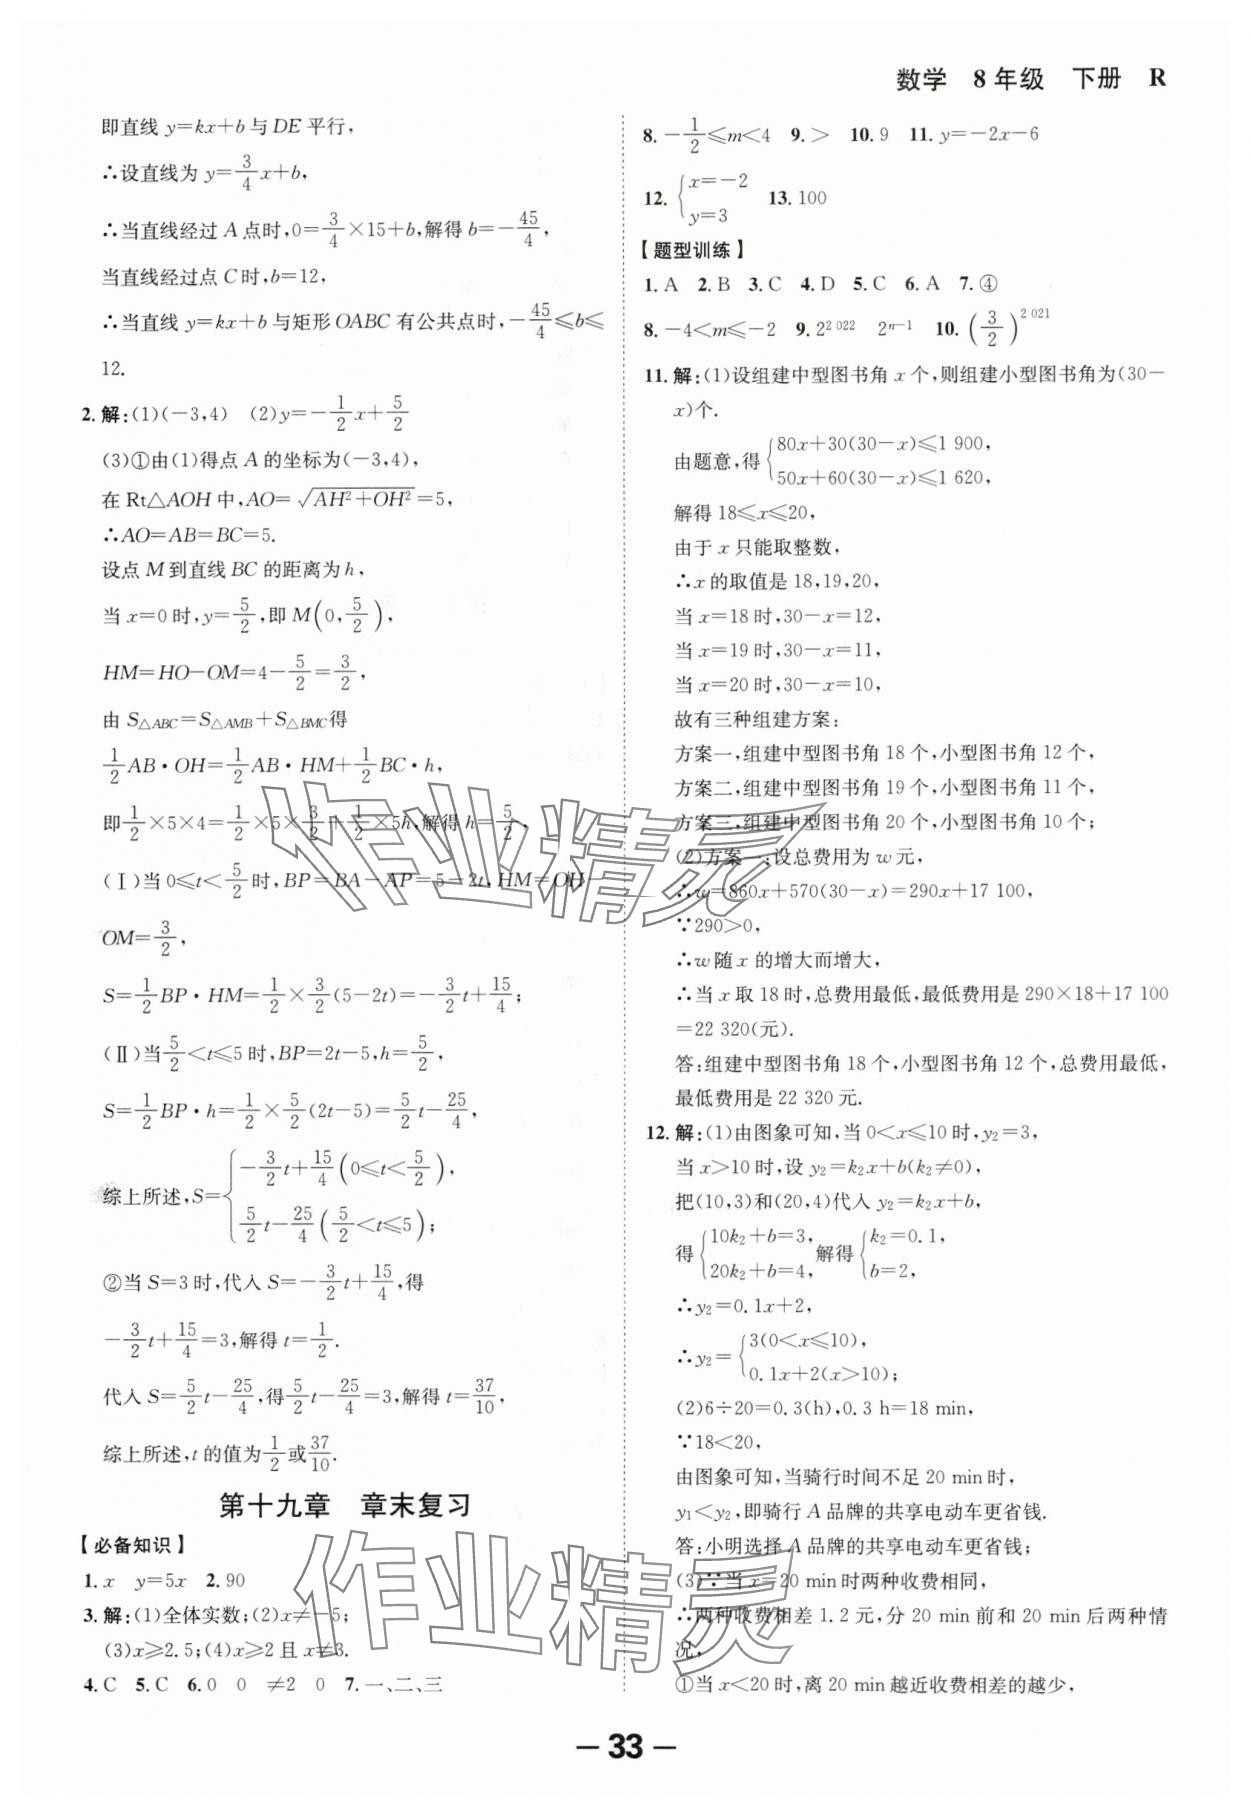 数学 8年级 下册 R
即直线 y=kx+b 与 DE 平行,
∴设直线为 y=3/4x+b,
∴当直线经过 A 点时,0=3/4×15+b,解得 b=-45/4,
当直线经过点 C 时,b=12,
∴当直线 y=kx+b 与矩形 OABC 有公共点时,-45/4≤b≤
12.
2.解:(1)(-3,4) (2)y=-1/2x+5/2
(3)①由(1)得点 A 的坐标为(-3,4),
在 Rt△AOH 中,AO=√(AH²+OH²)=5,
∴AO=AB=BC=5.
设点 M 到直线 BC 的距离为 h,
当 x=0 时,y=5/2,即 M(0,5/2),
HM=HO-OM=4-5/2=3/2,
由 S△ABC=S△AMB+S△BMC得
1/2AB·OH=1/2AB·HM+1/2BC·h,
即1/2×5×4=1/2×5×3/2+1/2×5h,解得 h=5/2,
(Ⅰ)当 0≤t<5/2时,BP=BA-AP=5-2t,HM=OH-
OM=3/2,
S=1/2BP·HM=1/2×3/2(5-2t)=-3/2t+15/4;
(Ⅱ)当5/2<t≤5 时,BP=2t-5,h=5/2,
S=1/2BP·h=1/2×5/2(2t-5)=5/2t-25/4,
综上所述,S={-3/2t+15/4(0≤t<5/2),
5/2t-25/4(5/2<t≤5);
②当 S=3 时,代入 S=-3/2t+15/4,得
-3/2t+15/4=3,解得 t=1/2.
代入 S=5/2t-25/4,得5/2t-25/4=3,解得 t=37/10,
综上所述,t 的值为1/2或37/10.
第十九章 章末复习
【必备知识】
1.x y=5x 2.90
3.解:(1)全体实数;(2)x≠-5;
(3)x≥2.5;(4)x≥2 且 x≠3.
4.C 5.C 6.0 0 ≠2 0 7.一、二、三
8.-1/2≤m<4 9.> 10.9 11.y=-2x-6
12.{x=-2
y=3 13.100
【题型训练】
1.A 2.B 3.C 4.D 5.C 6.A 7.④
8.-4<m≤-2 9.2^2 022 2^(n-1) 10.(3/2)^2 021
11.解:(1)设组建中型图书角 x 个,则组建小型图书角为(30-
x)个.
由题意,得{80x+30(30-x)≤1 900,
50x+60(30-x)≤1 620,
解得 18≤x≤20,
由于 x 只能取整数,
∴x 的取值是 18,19,20,
当 x=18 时,30-x=12,
当 x=19 时,30-x=11,
当 x=20 时,30-x=10,
故有三种组建方案:
方案一,组建中型图书角 18 个,小型图书角 12 个,
方案二,组建中型图书角 19 个,小型图书角 11 个,
方案三,组建中型图书角 20 个,小型图书角 10 个;
(2)方案一:设总费用为 w 元,
∴w=860x+570(30-x)=290x+17 100,
∵290>0,
∴w 随 x 的增大而增大,
∴当 x 取 18 时,总费用最低,最低费用是 290×18+17 100
=22 320(元).
答:组建中型图书角 18 个,小型图书角 12 个,总费用最低,
最低费用是 22 320 元.
12.解:(1)由图象可知,当 0<x≤10 时,y₂=3,
当 x>10 时,设 y₂=k₂x+b(k₂≠0),
把(10,3)和(20,4)代入 y₂=k₂x+b,
得{10k₂+b=3, 解得{k₂=0.1,
20k₂+b=4, b=2,
∴y₂=0.1x+2,
∴y₂={3(0<x≤10),
0.1x+2(x>10);
(2)6÷20=0.3(h),0.3 h=18 min,
∵18<20,
由图象可知,当骑行时间不足 20 min时,
y₁<y₂,即骑行 A 品牌的共享电动车更省钱.
答:小明选择 A 品牌的共享电动车更省钱;
(3)∵当 x=20 min时两种收费相同,
∴两种收费相差 1.2 元,分 20 min 前和 20 min 后两种情
况,
①当 x<20 时,离 20 min 越近收费相差的越少,
作业精灵
作业精灵
— 33 —